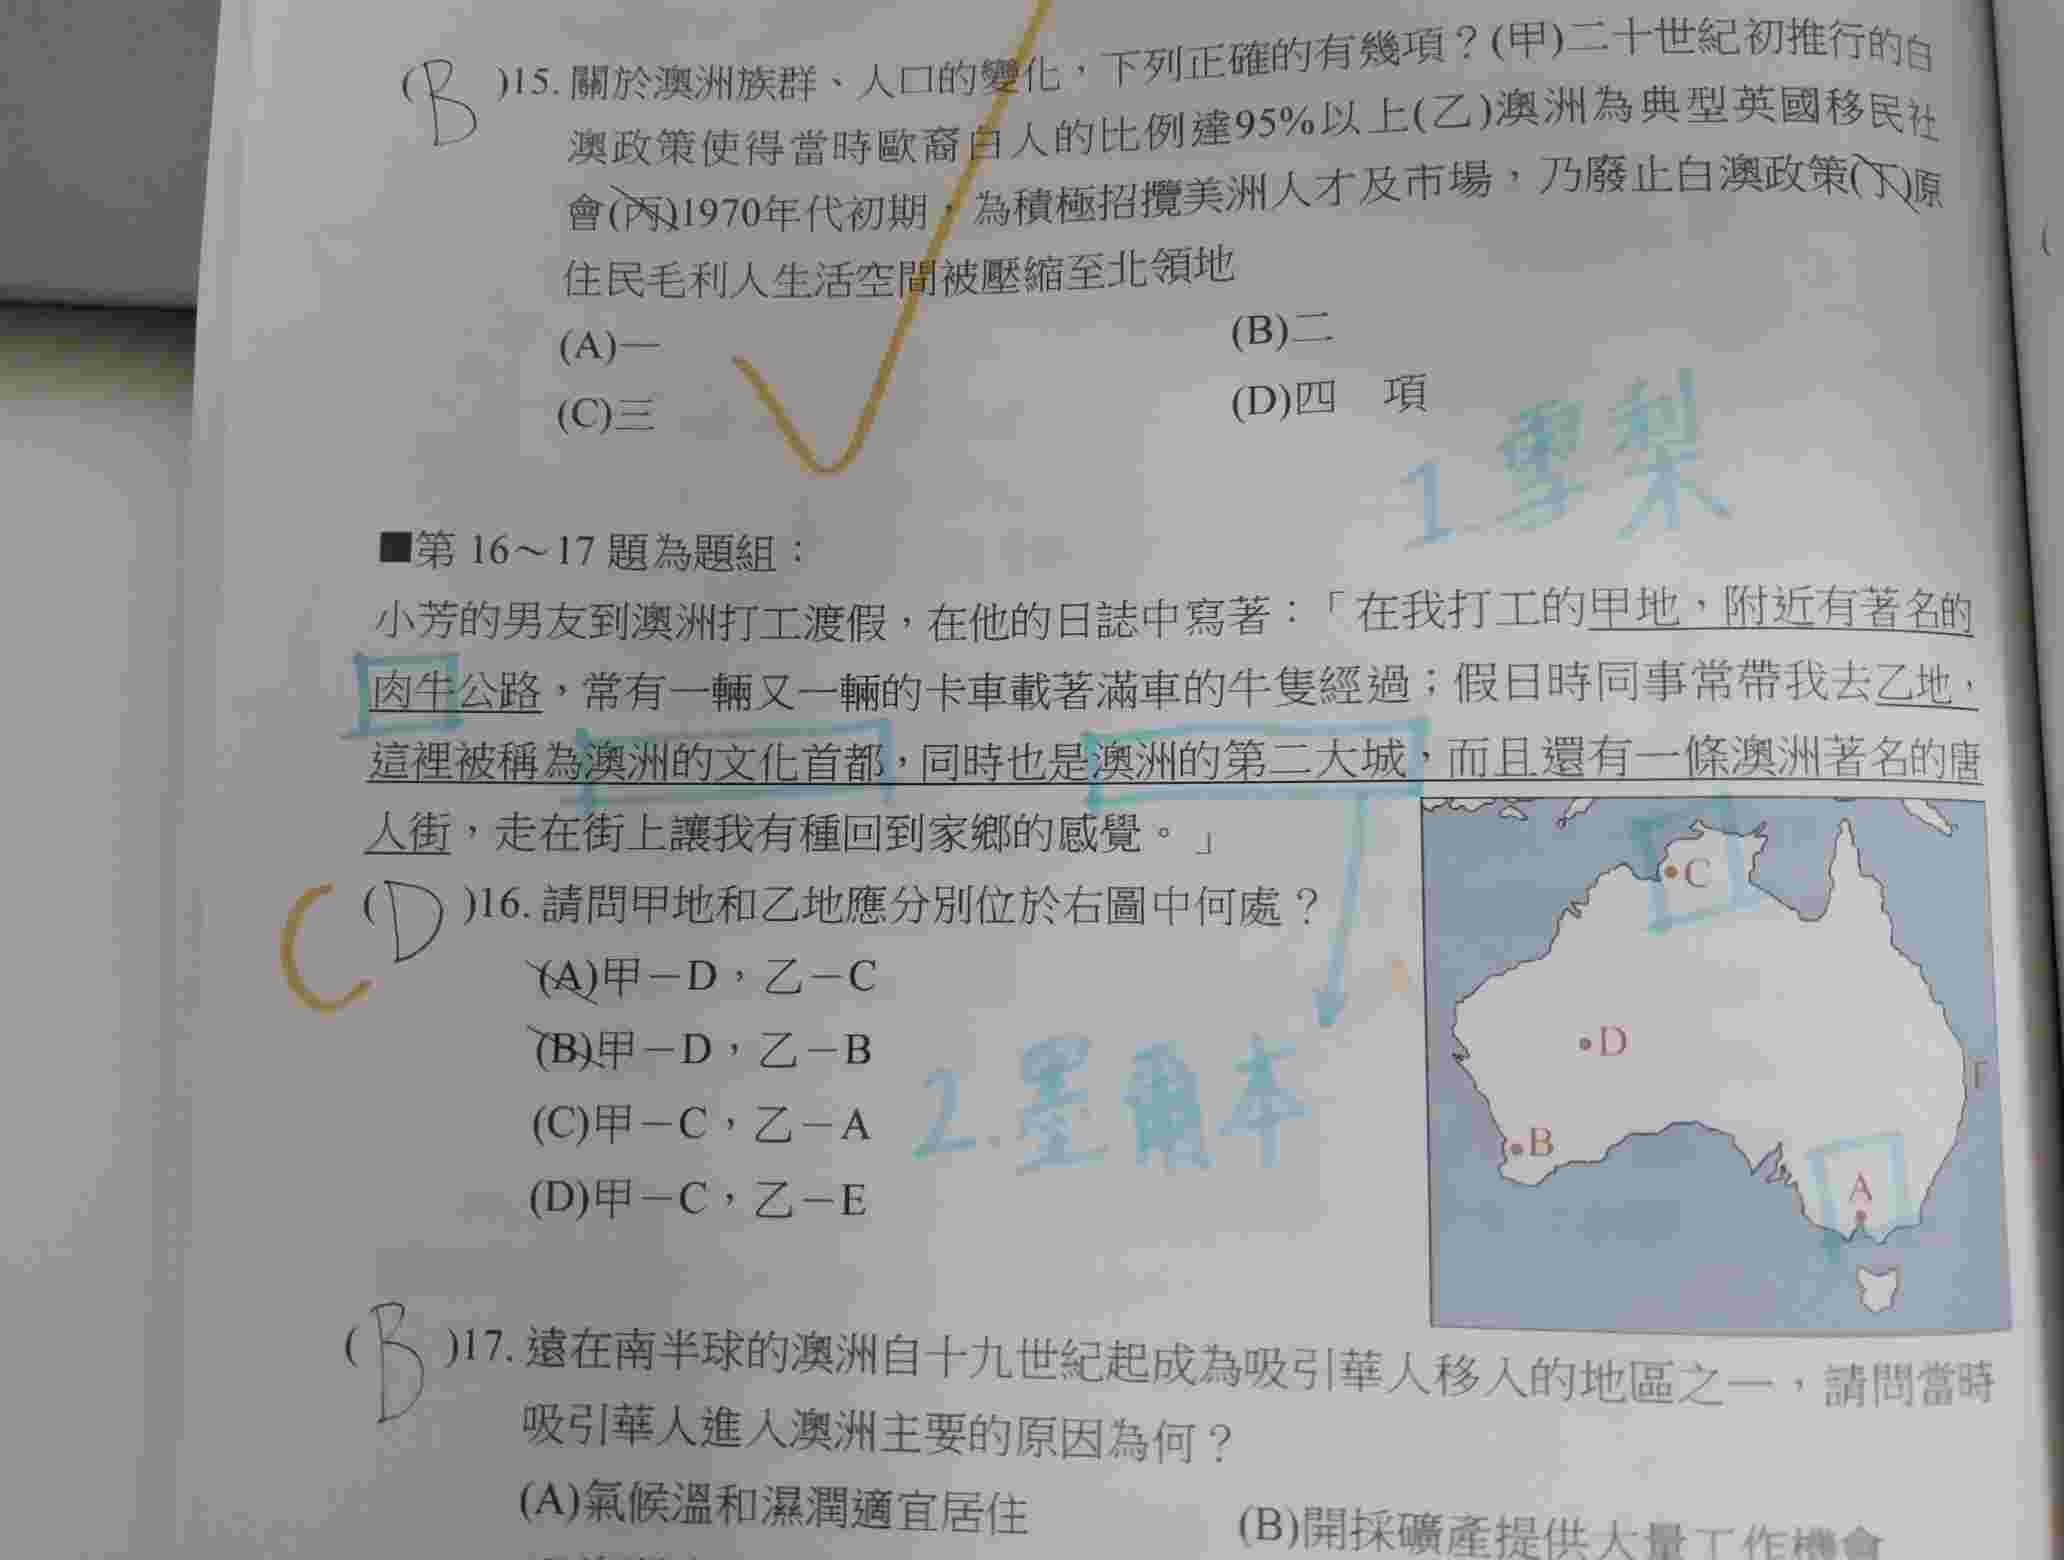 (B)15. 關於澳洲族群、人口的變化，下列正確的有幾項？(甲)二十世紀初推行的白
澳政策使得當時歐裔白人的比例達95%以上(乙)澳洲為典型英國移民社
會(丙)1970年代初期，為積極招攬美洲人才及市場，乃廢止白澳政策(丁)原
住民毛利人生活空間被壓縮至北領地
(A)一
(B)二
(C)三
(D)四　項
1.雪梨
■第 16～17 題為題組：
小芳的男友到澳洲打工渡假，在他的日誌中寫著：「在我打工的甲地，附近有著名的
肉牛公路，常有一輛又一輛的卡車載著滿車的牛隻經過；假日時同事常帶我去乙地，
這裡被稱為澳洲的文化首都，同時也是澳洲的第二大城，而且還有一條澳洲著名的唐
人街，走在街上讓我有種回到家鄉的感覺。」
C (D)16. 請問甲地和乙地應分別位於右圖中何處？
(A)甲－D，乙－C
(B)甲－D，乙－B
(C)甲－C，乙－A
(D)甲－C，乙－E
2.墨爾本
C
D
B
A
(B)17. 遠在南半球的澳洲自十九世紀起成為吸引華人移入的地區之一，請問當時
吸引華人進入澳洲主要的原因為何？
(A)氣候溫和濕潤適宜居住
(B)開採礦產提供大量工作機會